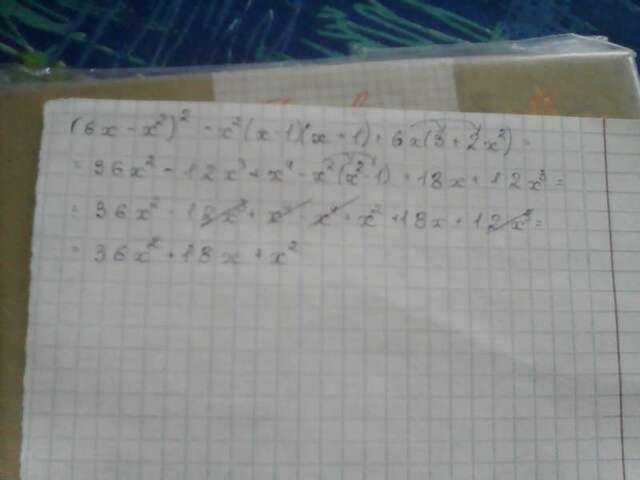 (6x - x²)² - x²(x-1)(x+1) + 6x(3+2x²) =
= 36x² - 12x³ + x⁴ - x²(x²-1) + 18x + 12x³ =
= 36x² - 12x³ + x⁴ - x⁴ + x² + 18x + 12x³ =
= 36x² + 18x + x²